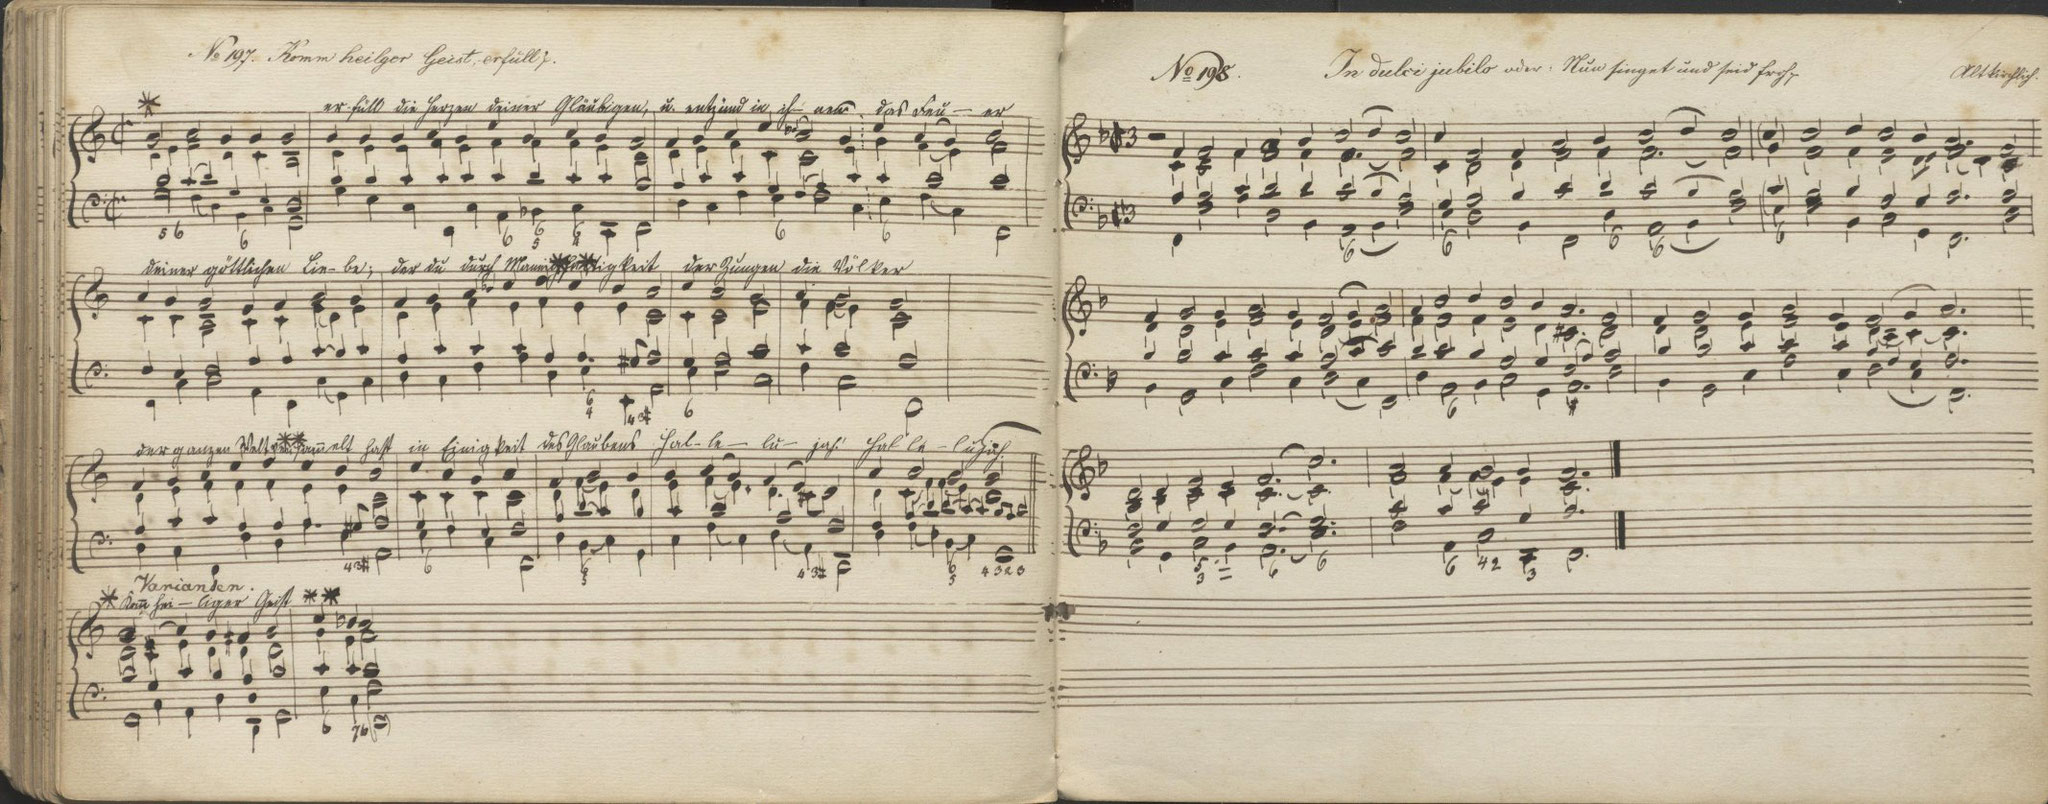 No 197. Komm heilger Geist, erfüll p.
er-füll die Herzen deiner Gläubigen, u. entzünd in ih- nen das Feu- er
deiner göttlichen Lie-be, der du durch Mannigfaltigkeit der Zungen die Völker
der ganzen Welt versam̄elt hast in Einigkeit des Glaubens Hal-le- lu- jah! Hal le- lujah.
Varianten.
Kom̄ hei-liger Geist
No 198. In dulci jubilo oder: Nun singet und seid froh p Altkirchlich.